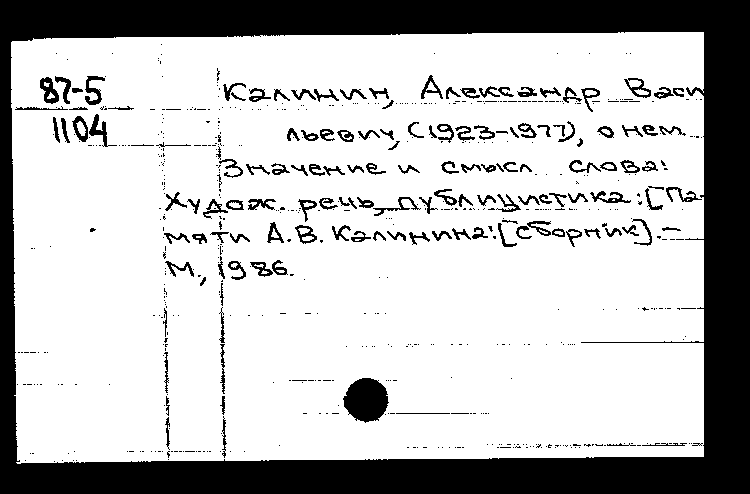 87-5
1104
Калинин, Александр Васи
льевич, (1923-1977), о нем.
Значение и смысл слова:
Худож. речь, публицистика: [Па-
мяти А.В. Калинина: [сборник]. —
М., 1986.